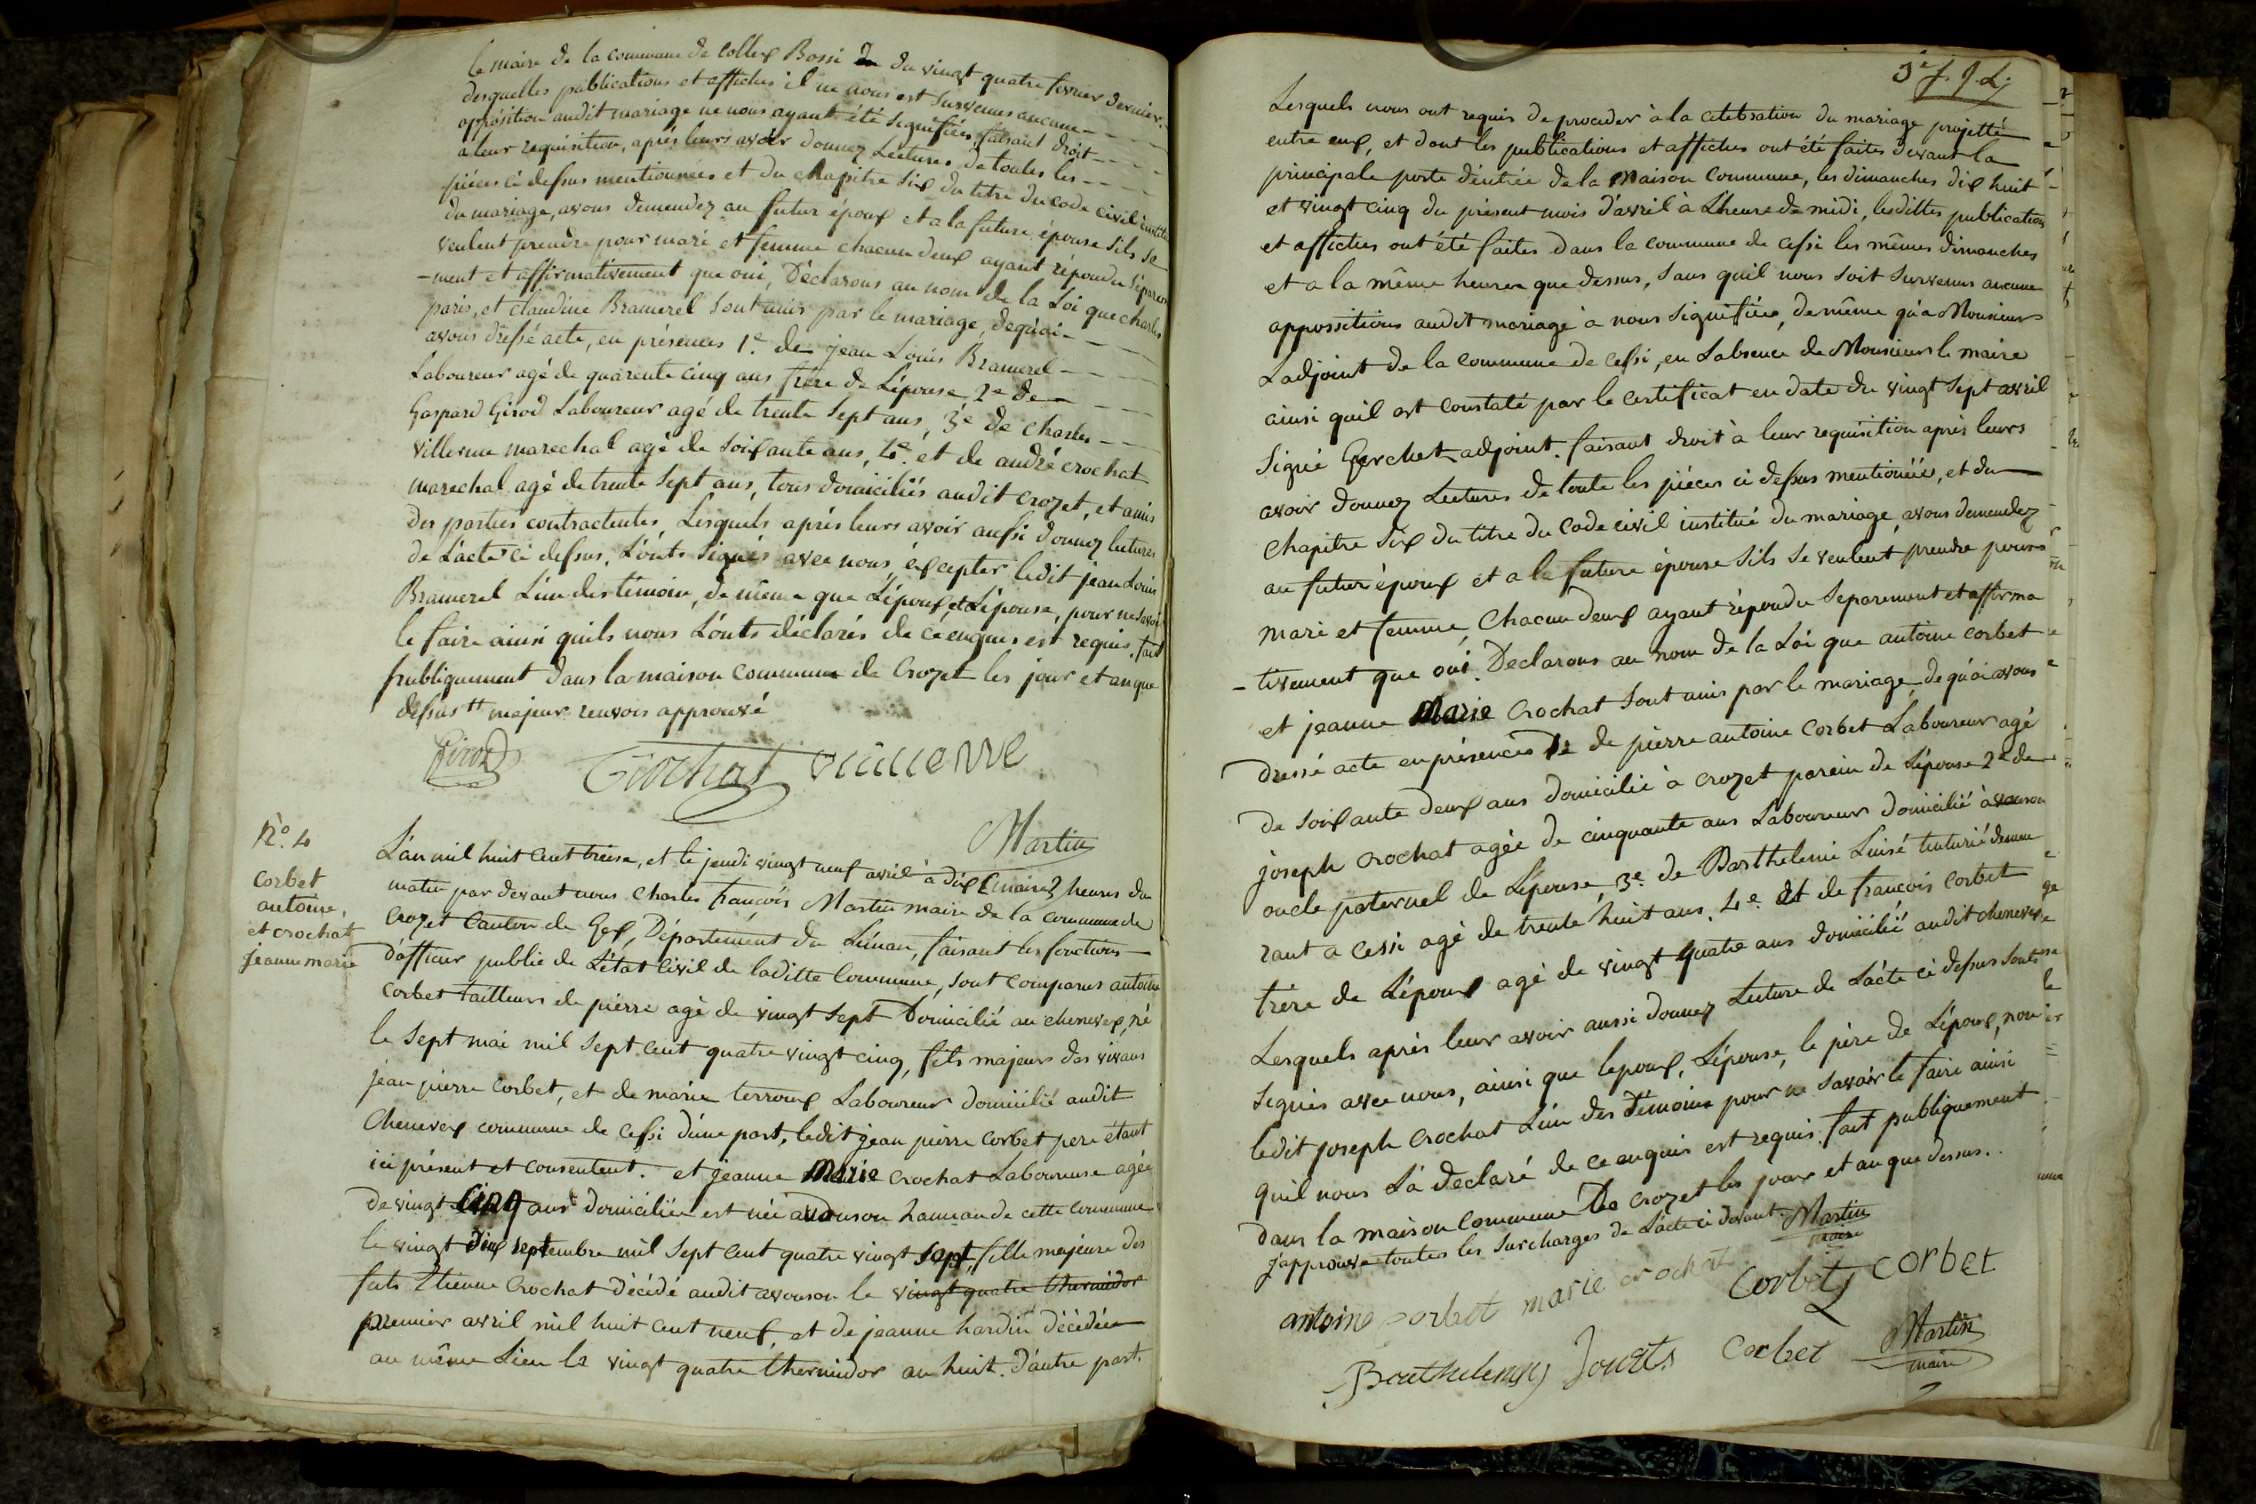 le maire de la commune de collex Bossi du vingt quatre fevrier dernier.
desquelles publications et affiches il ne nous est survenus aucune
opposition audit mariage ne nous ayant été signifiées, faisant droit
a leur requisition, après leurs avoir donnez Lectures de toutes les
piéces ci dessus mentionnees et du chapitre six du titre du code civil
du mariage, avons demendez au futur époux et a la future épouse sils se
veulent prendre pour mari et femme chacun deux ayant répondu séparé
-ment et affirmativement que oui, Déclarons au nom de la Loi que charles
paris, et claudine Bramerel sont unis par le mariage, dequoi
avons dressé acte, en présences 1e. de jean Louis Bramerel
Laboureur agé de quarente cinq ans frère de Lépouse, 2e de
Gaspard Girod Laboureur agé de trente sept ans, 3e de charles
villerme marechal agé de soixante ans, 4e. et de andré crochat
marechal agé de trente sept ans, tous domiciliés audit crozet, et amis
des parties contractentes, Lesquels après leurs avoir aussi donnez lectures
de Lácte ci dessus, Lónts signés avec nous, éxcepter ledit jean Louis
Bramerel Lún des témoin, de même que Lépoux, et Lépouse, pour ne savoir
le faire ainsi quils nous Lónts déclarés de ce enquis est requis. fait
publiquement dans la maison commune de Crozet les jour et an que
dessus tt majeur renvois approuvé
Girod Crochat villerme
Martin
maire
No. 4
corbet
antoine,
et crochat
jeanne marie
Lán mil huit cent treise, et le jeudi vingt neuf avril à dix heures du
matin par devant nous Charles françois Martin maire de la commune de
Crozet Canton de Gex, Département du Léman, faisant les fonctions
d'officier public de Létat Civil de laditte Commune, sont comparus antoine
corbet tailleurs de pierre agé de vingt sept Domicilié au chenevex, né
le sept mai mil sept cent quatre vingt cinq, fils majeurs des vivans
jean pierre corbet, et de marie terroux Laboureur domicilié audit
Chenevex commune de cessi dúne part, ledit jean pierre corbet pere étant
ici présent et consentent. et jeanne Marie crochat Laboureuse agée
de vingt Cinq ans domiciliée est née avouson hameau de cette commune
le vingt dix septembre mil sept cent quatre vingt sept, fille majeure des
futs Etienne Crochat décédé audit avouson le vingt quatre thermidor
premier avril mil huit cent neuf, et de jeanne hardin décédée
au même Lieu le vingt quatre thermidor an huit. dáutre part.
Lesquels nous ont requis de proceder à la célébration du mariage projetté
entre eux, et dont les publications et affiches ont été faites devant la
principale porte déntrée de la Maison Commune, les dimanches dix huit
et vingt cinq du présent mois d'avril à Lheure de midi, lesdittes publications
et affiches ont été faites dans la commune de cessi les mêmes dimanches
et a la même heures que dessus, sans quil nous soit survenus aucune
oppositions audit mariage à nous signifiées, de même quà Monsieur
Ladjoint de la commune de cessi, en Labsence de Monsieur le maire
ainsi quil est constaté par le certificat en date du vingt sept avril
signé Gerchet adjoint. faisant droit à leur requisition après leurs
avoir donnez Lectures de toute les piéces ci dessus mentionéés, et du
chapitre six du titre du Code civil institué du mariage, avons demendez
au futur époux et a la future épouse sils se veulent prendre pour
mari et femme, Chacun deux ayant répondu separement et affirma
-tivement que oui. Declarons au nom de la Loi que antoine corbet
et jeanne Marie Crochat sont unis par le mariage, de quoi avons
dressé acte en présences 1e de pierre antoine Corbet Laboureur agé
de soixante deux ans domicilié à crozet parain de Lépouse 2e de
joseph crochat agée de cinquante ans Laboureur domicilié à avouson
oncle paternel de Lépouse, 3e. de Barthelemi tinturié demeu
rant a cessi agé de trente huit ans. 4e. et de françois corbet
frère de Lépoux agé de vingt quatre ans domicilié audit chenevex
Lesquels après leur avoir aussi donnez Lecture de Lácte ci dessus Lont
signés avec nous, ainsi que lepoux, Lépouse, le père de Lépoux, non
ledit joseph Crochat Lún des Témoins pour ne savoir le faire ainsi
quil nous Lá declaré de ce enquis est requis. fait publiquement
dans la maison Commune De crozet les jour et an que dessus.
j'approuve toutes les surcharges de Lácte ci devant. Martin
maire
antoine corbet marie crochat Corbet corbet
Barthelemy corbet Martin
maire